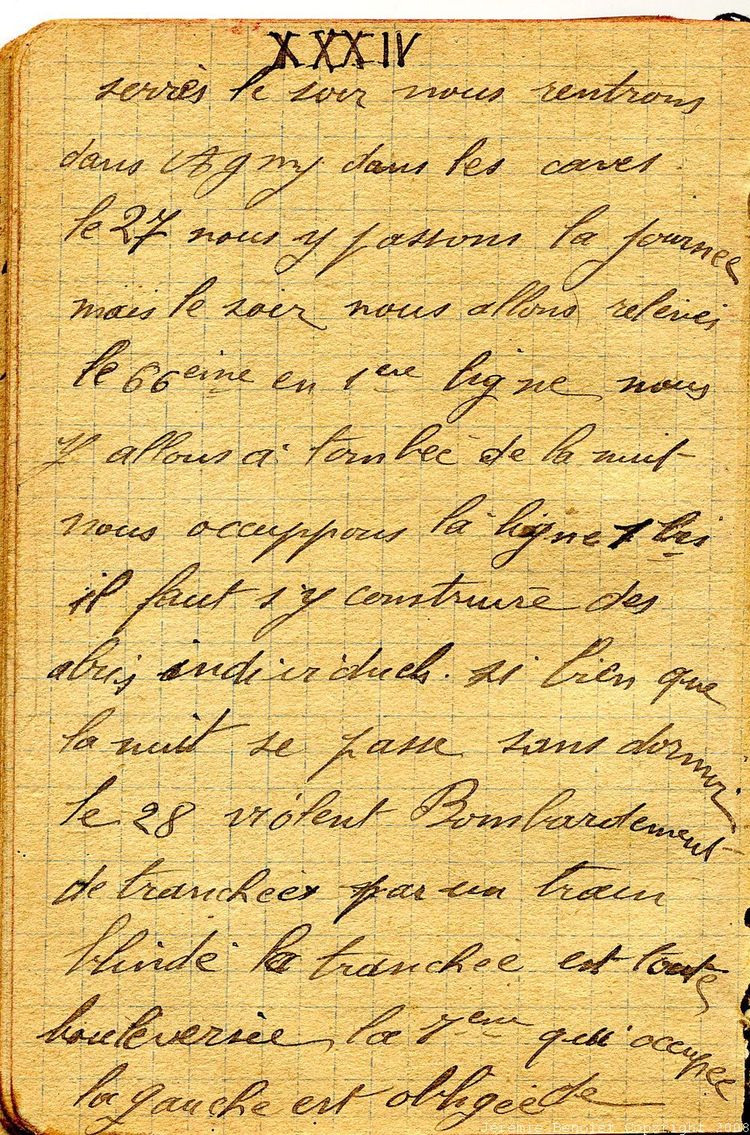 XXXIV
serrés le soir nous rentrons
dans Agny dans les caves.
le 27 nous y passons la journee
mais le soir nous allons relevés
le 66eme en 1ere ligne nous
y allons a tombée de la nuit
nous occuppons la ligne 1 bis
il faut s'y construire des
abris individuels. si bien que
la nuit se passe sans dormir
le 28 violent Bombardement
de tranchées par un train
blindé la tranchée est toute
bouleversée la 7eme qui occupee
la gauche est obligée de
Jeremie Benoist Copyright 2008